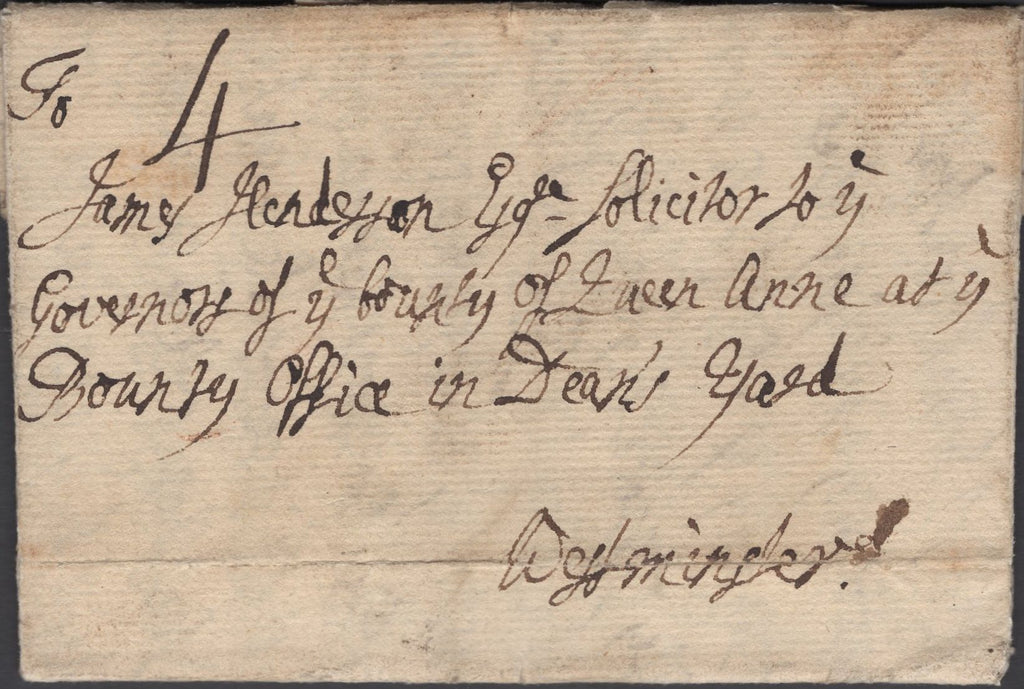 To 4
James Henderson Esqr. Sollicitor to ye
Governors of ye bounty of Queen Anne at ye
Bounty Office in Dean's Yard
Westminster.